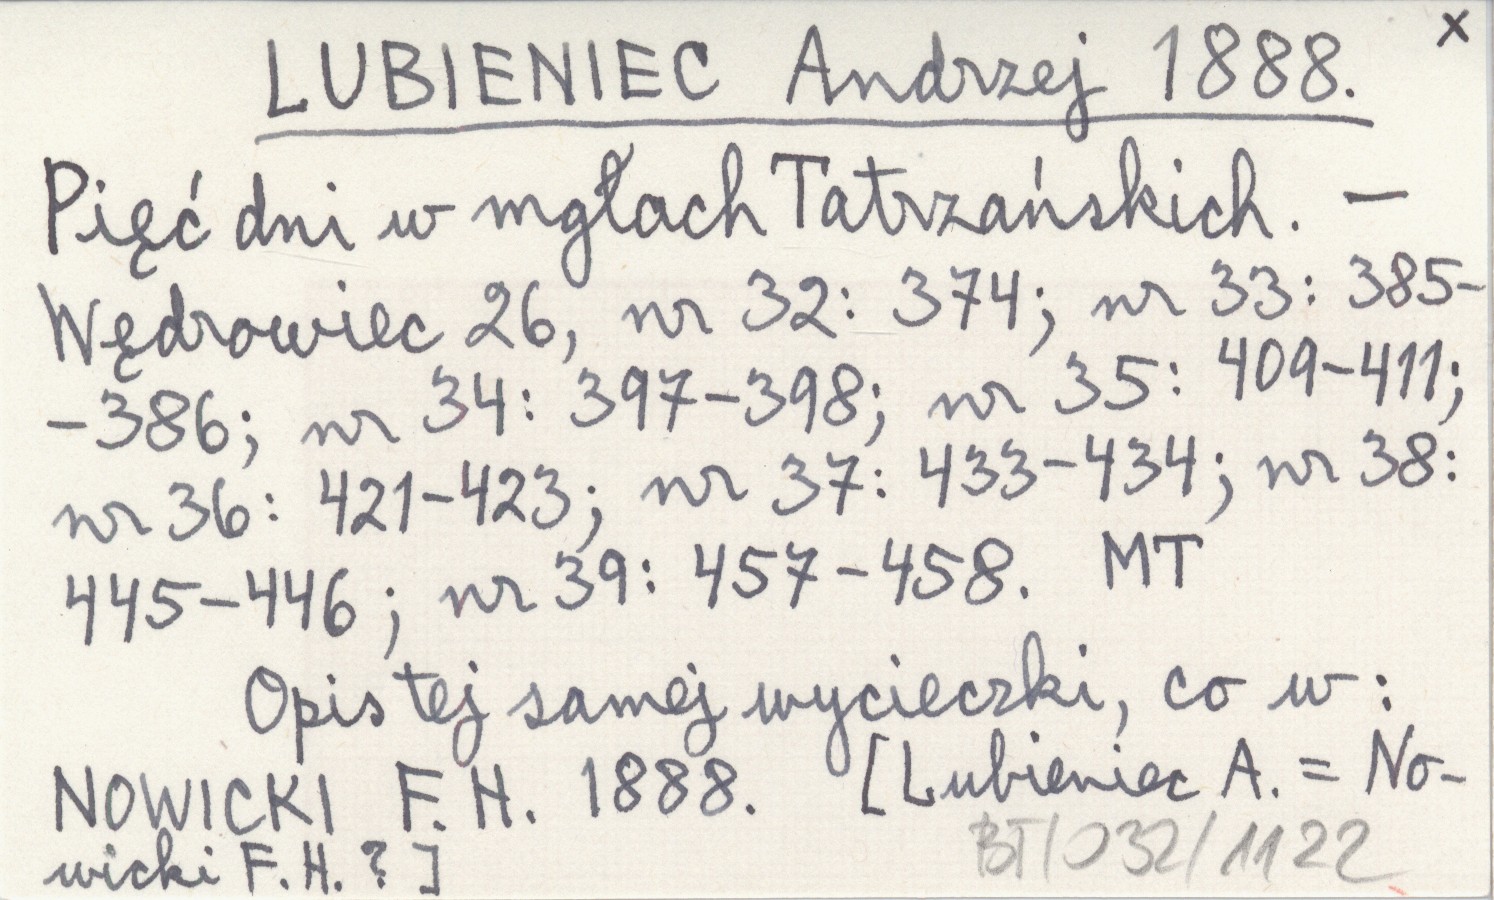 x
LUBIENIEC Andrzej 1888.
Pięć dni w mgłach Tatrzańskich. —
Wędrowiec 26, nr 32: 374; nr 33: 385-
-386; nr 34: 397-398; nr 35: 409-411;
nr 36: 421-423; nr 37: 433-434; nr 38:
445-446; nr 39: 457-458. MT
Opis tej samej wycieczki, co w:
NOWICKI F. H. 1888. [Lubieniec A. = No-
wicki F. H. ? ]
BT/032/1122